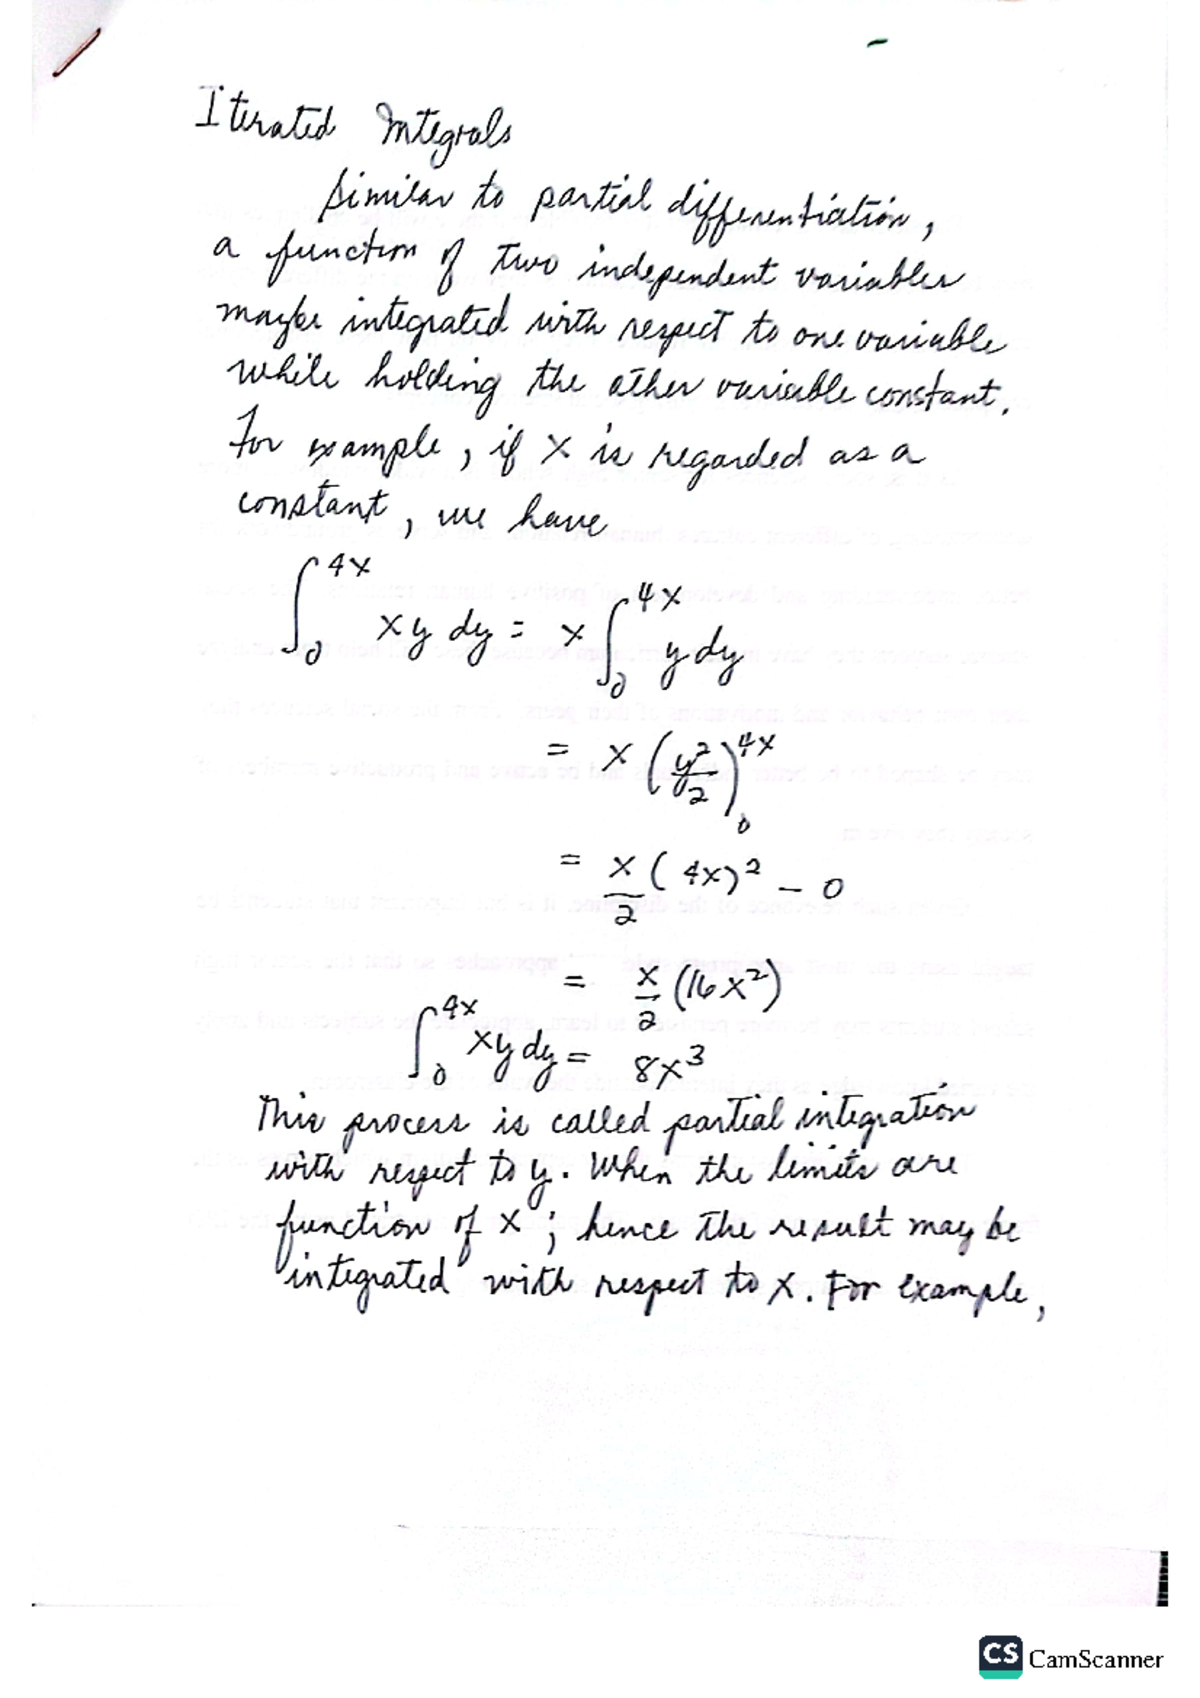 Iterated Integrals
Similar to partial differentiation,
a function of two independent variables
maybe integrated with respect to one variable
while holding the other variable constant.
For example, if x is regarded as a
constant, we have
∫₀^4x xy dy = x ∫₀^4x y dy
= x (y²/2)₀^4x
= x/2 (4x)² - 0
= x/2 (16x²)
∫₀^4x xy dy = 8x³
This process is called partial integration
with respect to y. When the limits are
function of x; hence the result may be
integrated with respect to x. For example,
CS CamScanner